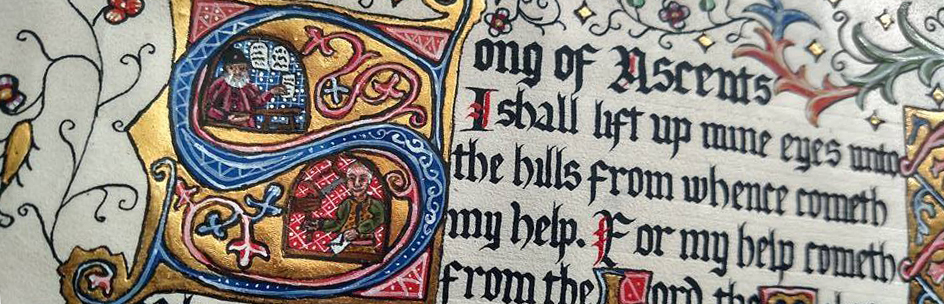 Song of Ascents
I shall lift up mine eyes unto
the hills from whence cometh
my help. For my help cometh
from the Lord the